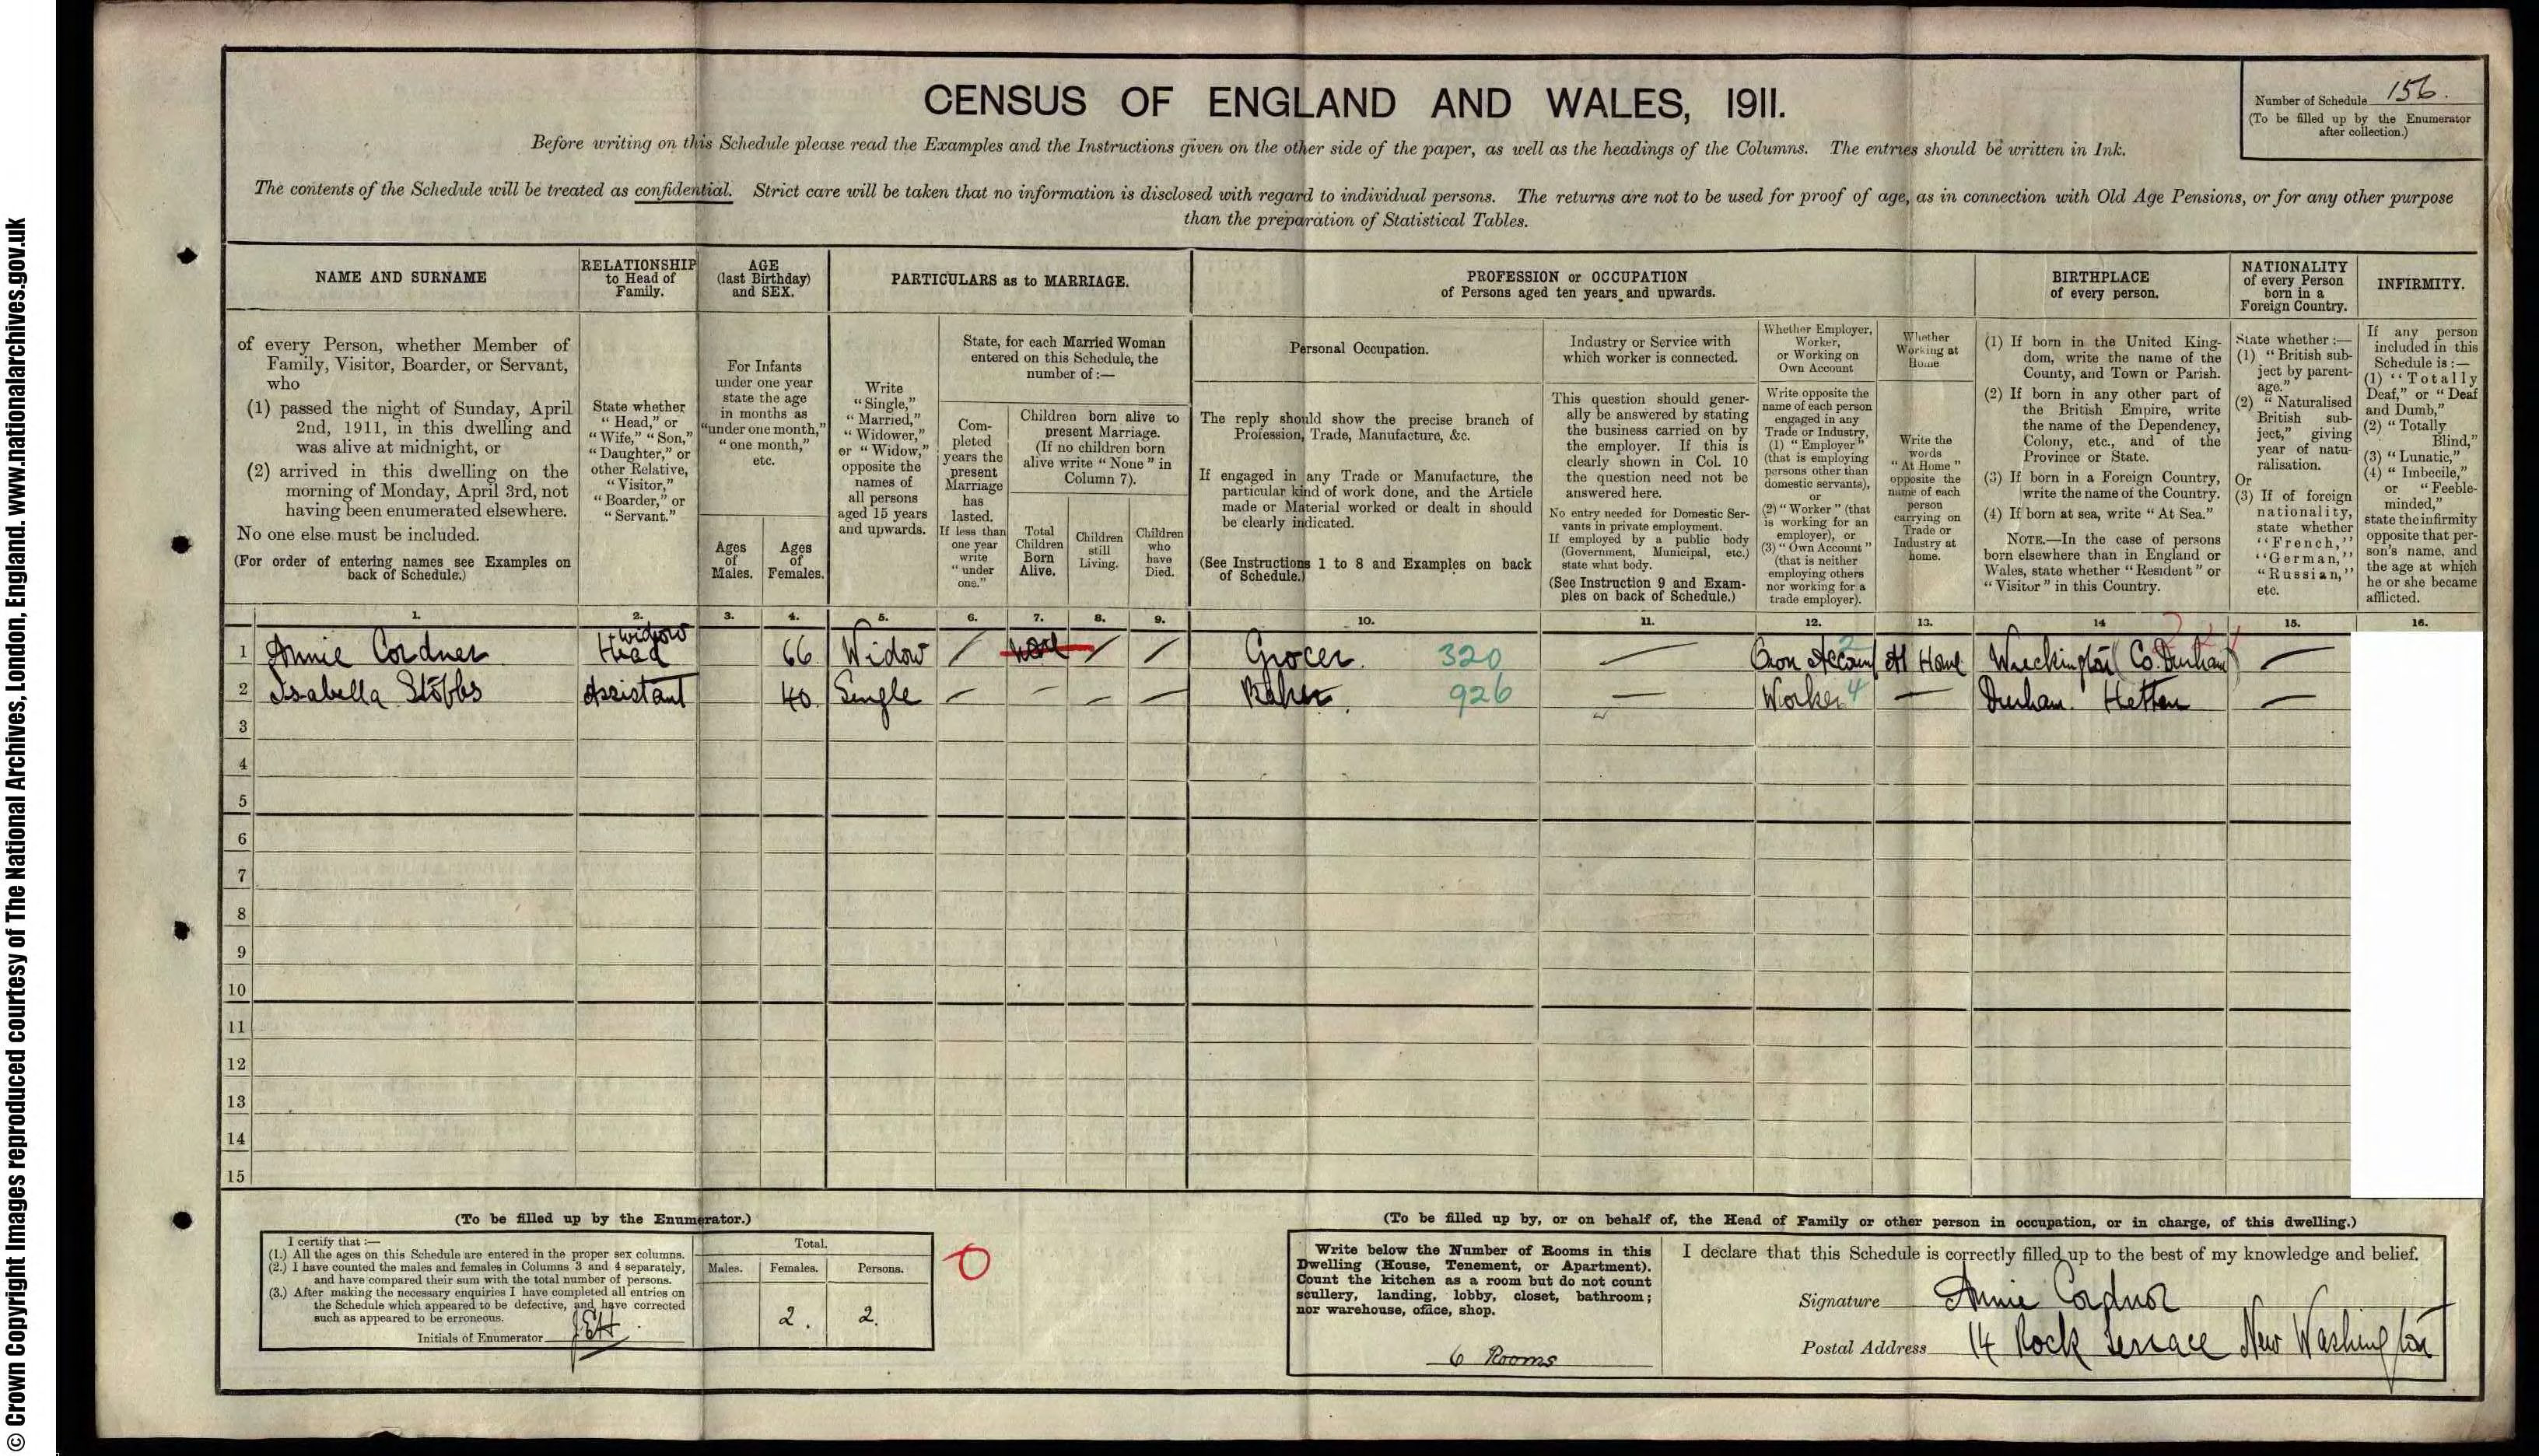 © Crown Copyright Images reproduced courtesy of The National Archives, London, England. www.nationalarchives.gov.uk
CENSUS OF ENGLAND AND WALES, 1911.
Number of Schedule 156.
(To be filled up by the Enumerator
after collection.)
Before writing on this Schedule please read the Examples and the Instructions given on the other side of the paper, as well as the headings of the Columns. The entries should be written in Ink.
The contents of the Schedule will be treated as confidential. Strict care will be taken that no information is disclosed with regard to individual persons. The returns are not to be used for proof of age, as in connection with Old Age Pensions, or for any other purpose
than the preparation of Statistical Tables.
NAME AND SURNAME
RELATIONSHIP
to Head of
Family.
AGE
(last Birthday)
and SEX.
PARTICULARS as to MARRIAGE.
PROFESSION or OCCUPATION
of Persons aged ten years and upwards.
BIRTHPLACE
of every person.
NATIONALITY
of every Person
born in a
Foreign Country.
INFIRMITY.
of every Person, whether Member of
Family, Visitor, Boarder, or Servant,
who
(1) passed the night of Sunday, April
2nd, 1911, in this dwelling and
was alive at midnight, or
(2) arrived in this dwelling on the
morning of Monday, April 3rd, not
having been enumerated elsewhere.
No one else must be included.
(For order of entering names see Examples on
back of Schedule.)
State whether
"Head," or
"Wife," "Son,"
"Daughter," or
other Relative,
"Visitor,"
"Boarder," or
"Servant."
For Infants
under one year
state the age
in months as
"under one month,"
"one month,"
etc.
Ages
of
Males.
Ages
of
Females.
Write
"Single,"
"Married,"
"Widower,"
or "Widow,"
opposite the
names of
all persons
aged 15 years
and upwards.
State, for each Married Woman
entered on this Schedule, the
number of :—
Com-
pleted
years the
present
Marriage
has
lasted.
If less than
one year
write
"under
one."
Children born alive to
present Marriage.
(If no children born
alive write "None" in
Column 7).
Total
Children
Born
Alive.
Children
still
Living.
Children
who
have
Died.
Personal Occupation.
The reply should show the precise branch of
Profession, Trade, Manufacture, &c.
If engaged in any Trade or Manufacture, the
particular kind of work done, and the Article
made or Material worked or dealt in should
be clearly indicated.
(See Instructions 1 to 8 and Examples on back
of Schedule.)
Industry or Service with
which worker is connected.
This question should gener-
ally be answered by stating
the business carried on by
the employer. If this is
clearly shown in Col. 10
the question need not be
answered here.
No entry needed for Domestic Ser-
vants in private employment.
If employed by a public body
(Government, Municipal, etc.)
state what body.
(See Instruction 9 and Exam-
ples on back of Schedule.)
Whether Employer,
Worker,
or Working on
Own Account
Write opposite the
name of each person
engaged in any
Trade or Industry,
(1) "Employer"
(that is employing
persons other than
domestic servants),
or
(2) "Worker" (that
is working for an
employer), or
(3) "Own Account"
(that is neither
employing others
nor working for a
trade employer).
Whether
Working at
Home
Write the
words
"At Home"
opposite the
name of each
person
carrying on
Trade or
Industry at
home.
(1) If born in the United King-
dom, write the name of the
County, and Town or Parish.
(2) If born in any other part of
the British Empire, write
the name of the Dependency,
Colony, etc., and of the
Province or State.
(3) If born in a Foreign Country,
write the name of the Country.
(4) If born at sea, write "At Sea."
NOTE.—In the case of persons
born elsewhere than in England or
Wales, state whether "Resident" or
"Visitor" in this Country.
State whether :—
(1) "British sub-
ject by parent-
age."
(2) "Naturalised
British sub-
ject," giving
year of natu-
ralisation.
Or
(3) If of foreign
nationality,
state whether
"French,"
"German,"
"Russian,"
etc.
If any person
included in this
Schedule is :—
(1) "Totally
Deaf," or "Deaf
and Dumb,"
(2) "Totally
Blind,"
(3) "Lunatic,"
(4) "Imbecile,"
or "Feeble-
minded,"
state the infirmity
opposite that per-
son's name, and
the age at which
he or she became
afflicted.
1. 2. 3. 4. 5. 6. 7. 8. 9. 10. 11. 12. 13. 14 15. 16.
widow
1 Annie Cordner Head 66 Widow / None / / Grocer. 320 — Own Account At Home Wreckington Co. Durham —
2 Isabella Stobbs Assistant 40. Single — — — — Baker. 926 — Worker 4 — Durham. Hetton —
3
4
5
6
7
8
9
10
11
12
13
14
15
(To be filled up by the Enumerator.)
I certify that :—
(1.) All the ages on this Schedule are entered in the proper sex columns.
(2.) I have counted the males and females in Columns 3 and 4 separately,
and have compared their sum with the total number of persons.
(3.) After making the necessary enquiries I have completed all entries on
the Schedule which appeared to be defective, and have corrected
such as appeared to be erroneous.
Initials of Enumerator JEH
Total.
Males. Females. Persons.
2. 2.
0
(To be filled up by, or on behalf of, the Head of Family or other person in occupation, or in charge, of this dwelling.)
Write below the Number of Rooms in this
Dwelling (House, Tenement, or Apartment).
Count the kitchen as a room but do not count
scullery, landing, lobby, closet, bathroom;
nor warehouse, office, shop.
6 Rooms
I declare that this Schedule is correctly filled up to the best of my knowledge and belief.
Signature Annie Cordner
Postal Address 14 Rock Terrace New Washington